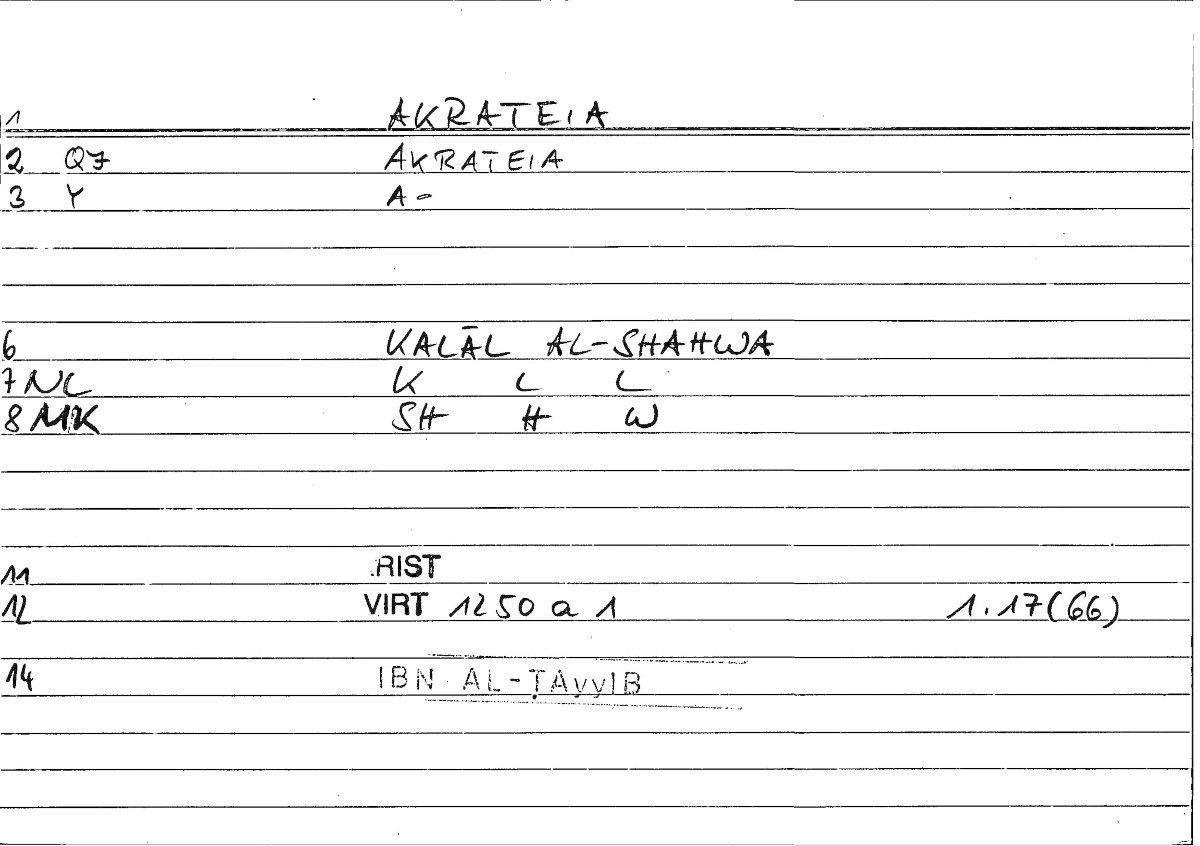 1 AKRATEIA
2 Q7 AKRATEIA
3 Y A-
6 KALĀL AL-SHAHWA
7 NL K L L
8 MK SH H W
11 .RIST
12 VIRT 1250 a 1 1.17(66)
14 IBN AL-ṬAyyIB